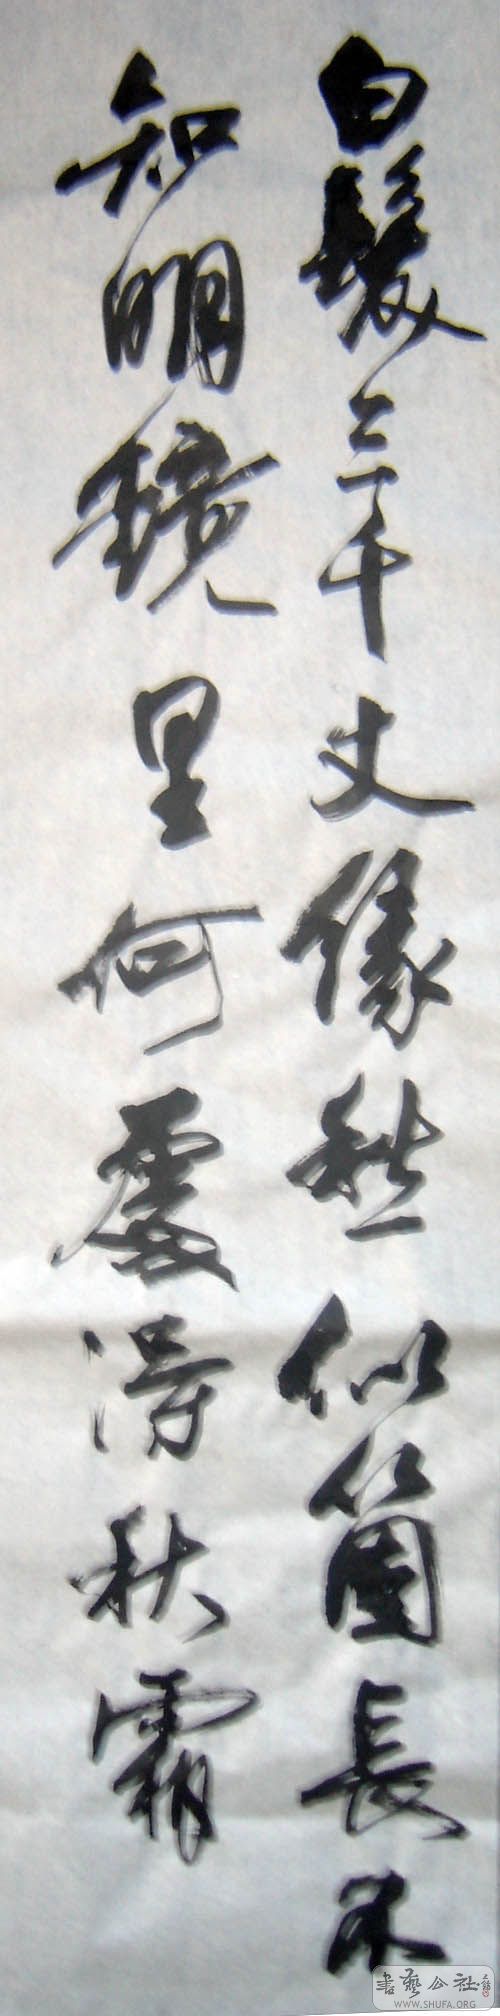 白髮三千丈像愁似箇長不
知明鏡里何處得秋霜
書藝公社
WWW.SHUFA.ORG